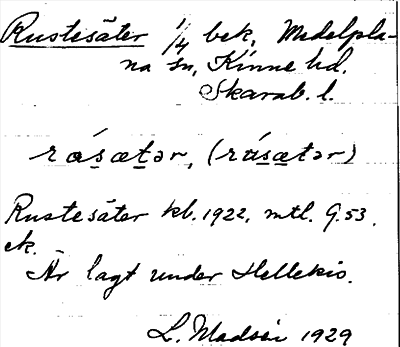 Rustesäter 1/4 bek, Medelpla-
na sn, Kinne hd.
Skarab. l.
rásætər, (rúsætər)
Rustesäter kb. 1922, mtl. G. 53.
ek.
Är lagt under Hellekis.
L. 1929